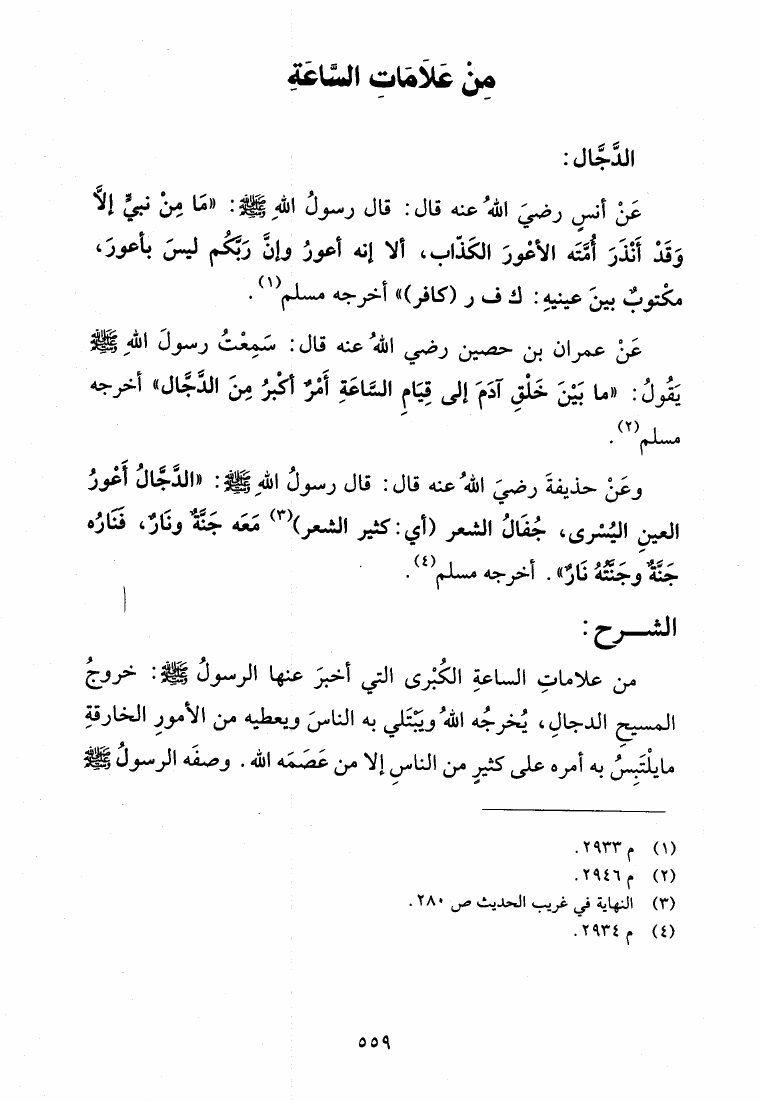 مِنْ عَلَامَاتِ السَّاعَةِ
الدَّجَّال :
عَنْ أنسٍ رضيَ اللهُ عنه قال : قال رسولُ اللهِ ﷺ : «مَا مِنْ نبيٍّ إلاَّ
وَقَدْ أَنْذَرَ أُمَّتَه الأعْورَ الكَذّاب ، ألا إنه أعورُ وإنَّ رَبَّكُم ليسَ بأعورَ ،
مكتوبٌ بينَ عينيهِ : ك ف ر (كافر)» أخرجه مسلم(١) .
عَنْ عمران بن حصين رضي اللهُ عنه قال : سَمِعْتُ رسولَ اللهِ ﷺ
يَقُولُ : «ما بَيْنَ خَلْقِ آدَمَ إلى قِيَامِ السَّاعَةِ أَمْرٌ أكْبَرُ مِنَ الدَّجَّال» أخرجه
مسلم(٢) .
وعَنْ حذيفةَ رضيَ اللهُ عنه قال : قال رسولُ اللهِ ﷺ : «الدَّجَّالُ أعْورُ
العينِ اليُسْرى ، جُفَالُ الشعر (أي : كثير الشعر)(٣) مَعَه جَنَّةٌ ونَارٌ ، فَنَارُه
جَنَّةٌ وجَنَّتُهُ نَارٌ» . أخرجه مسلم(٤) .
الشـــرح :
من علاماتِ الساعةِ الكُبْرى التي أخبرَ عنها الرسولُ ﷺ : خروجُ
المسيحِ الدجالِ ، يُخرجُه اللهُ ويَبْتَلي به الناسَ ويعطيه من الأمورِ الخارقةِ
مايلْتَبِسُ به أمره على كثيرٍ من الناسِ إلا من عَصَمَه الله . وصفَه الرسولُ ﷺ
(١) م ٢٩٣٣ .
(٢) م ٢٩٤٦ .
(٣) النهاية في غريب الحديث ص ٢٨٠ .
(٤) م ٢٩٣٤ .
٥٥٩